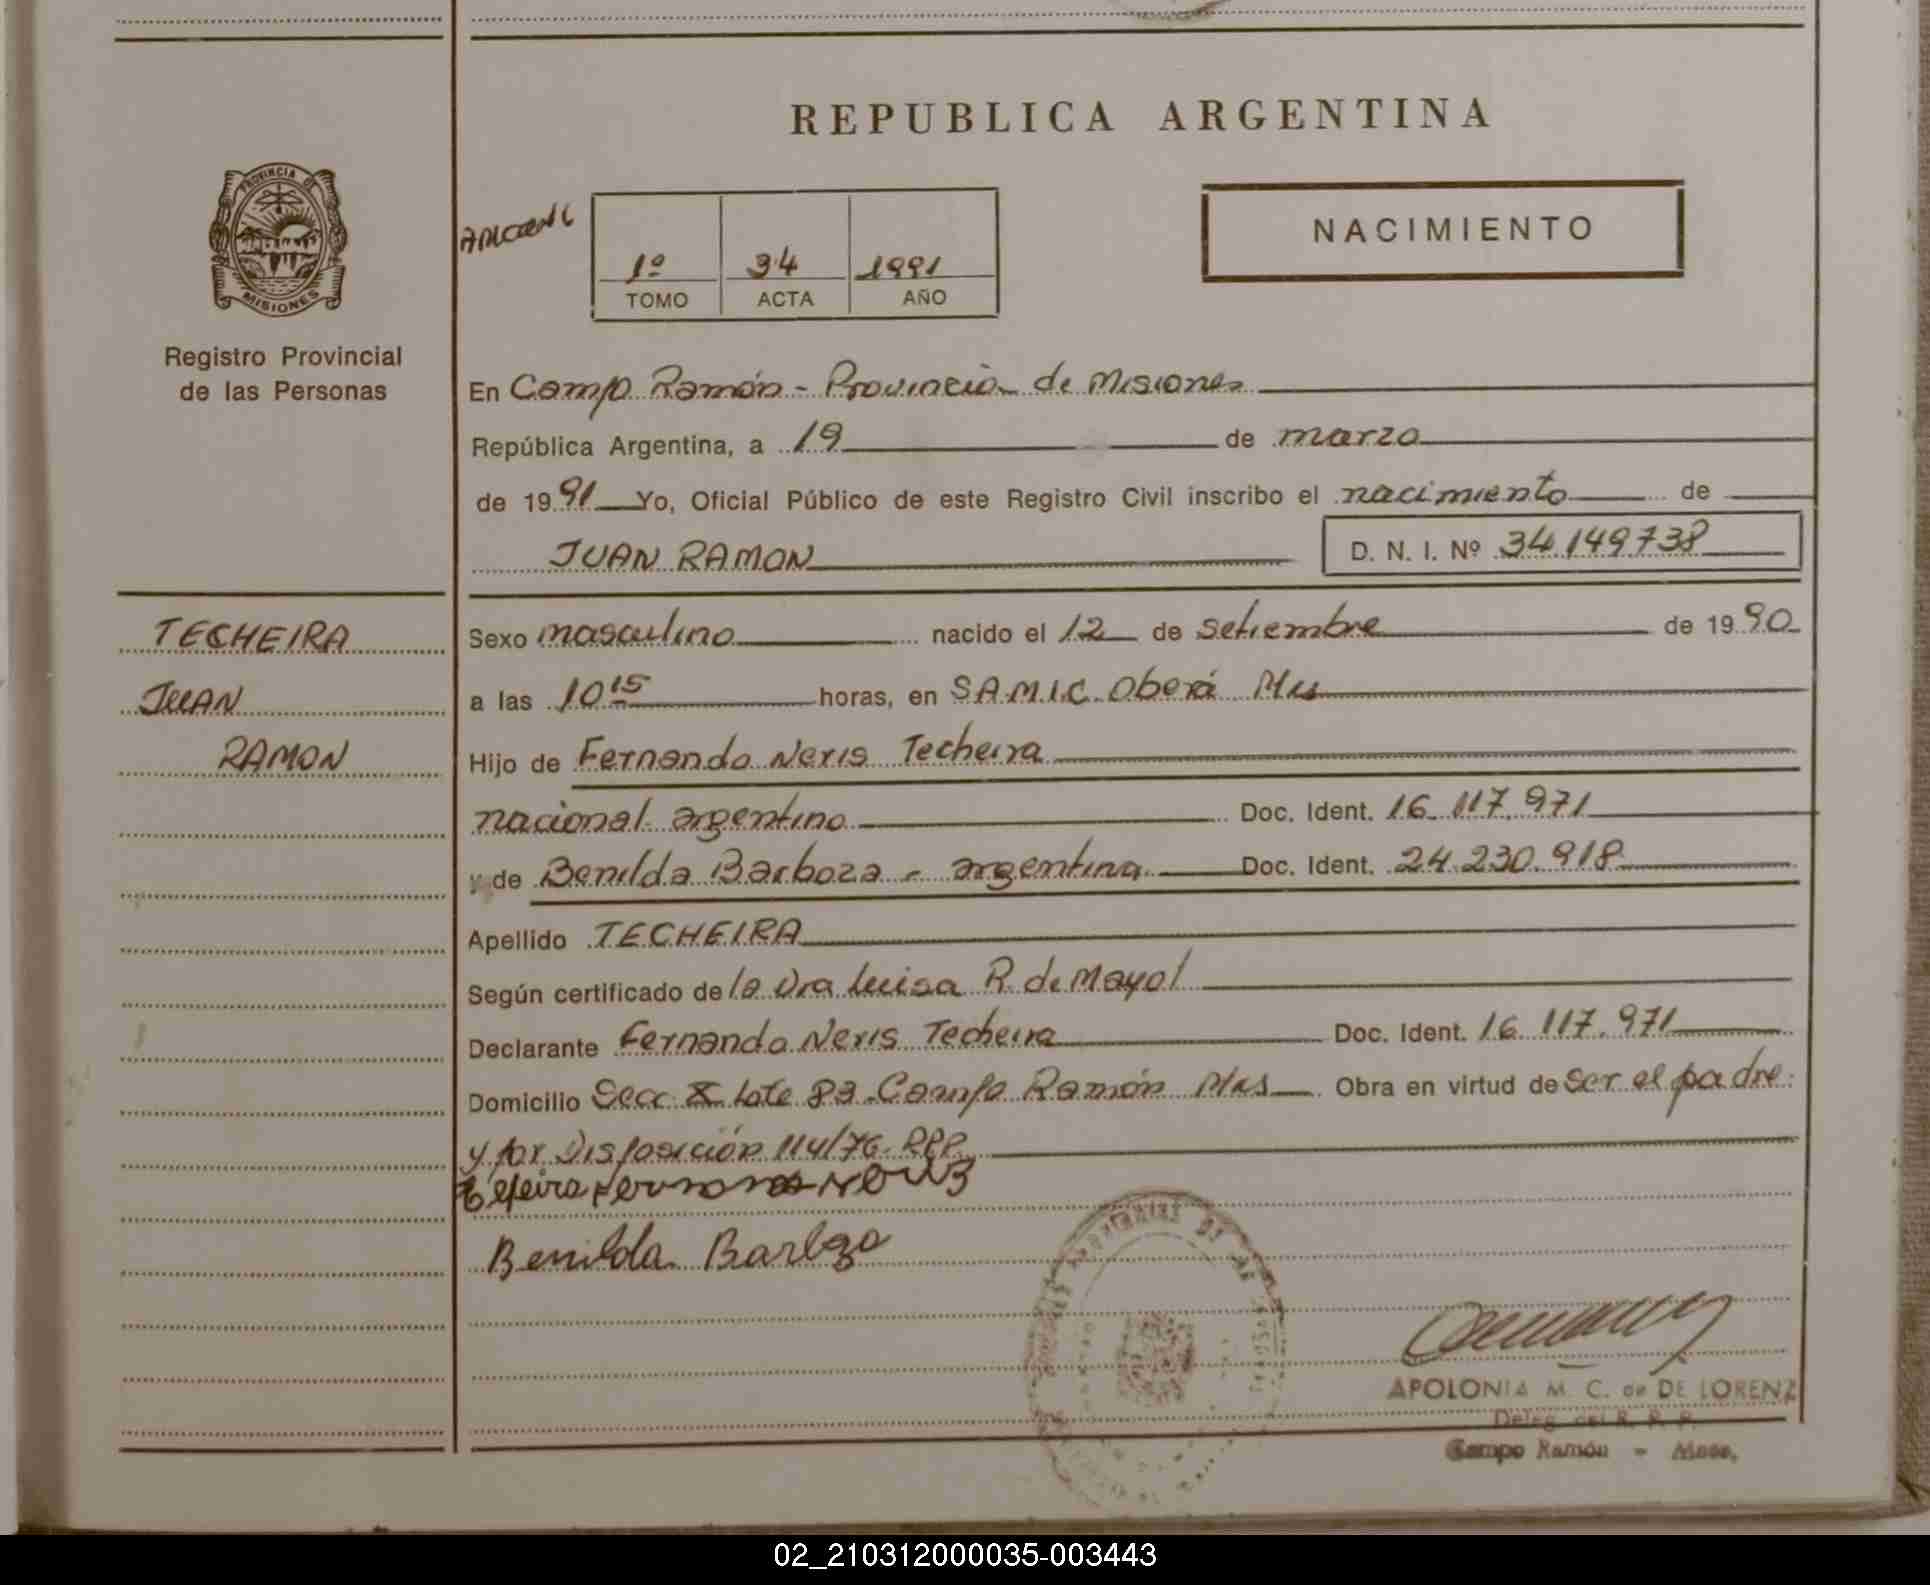 REPUBLICA ARGENTINA
PROVINCIA DE
MISIONES
Registro Provincial
de las Personas
1º 34 1991
TOMO ACTA AÑO
NACIMIENTO
En Campo Ramón - Provincia de Misiones
República Argentina, a 19 de marzo
de 1991 Yo, Oficial Público de este Registro Civil inscribo el nacimiento de
JUAN RAMON D. N. I. Nº 34.149738
TECHEIRA
JUAN
RAMON
Sexo masculino nacido el 12 de setiembre de 1990
a las 10 15 horas, en S.A.M.I.C. Oberá Mns
Hijo de Fernando Neris Techeira
nacional. argentino Doc. Ident. 16.117.971
y de Benilda Barboza - argentina Doc. Ident. 24.230.918
Apellido TECHEIRA
Según certificado de la Dra Luisa R. de Mayol
Declarante Fernando Neris Techeira Doc. Ident. 16.117.971
Domicilio Secc X Lote 82 - Campo Ramón Mns Obra en virtud de ser el padre
y por Disposición 114/76. RPP.
Benilda Barboza
APOLONIA M. C. de DE LORENZ
Deleg. del R. P. P.
Campo Ramón - Mnes.
02_210312000035-003443